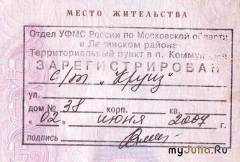 МЕСТО ЖИТЕЛЬСТВА
Отдел УФМС России по Московской области
в Ленинском районе
Территориальный пункт в п. Коммунарка
ЗАРЕГИСТРИРОВАН
с/т
дом № 38 корп. кв.
"02" июня 2007 г.
подпись
myJulia.Ru